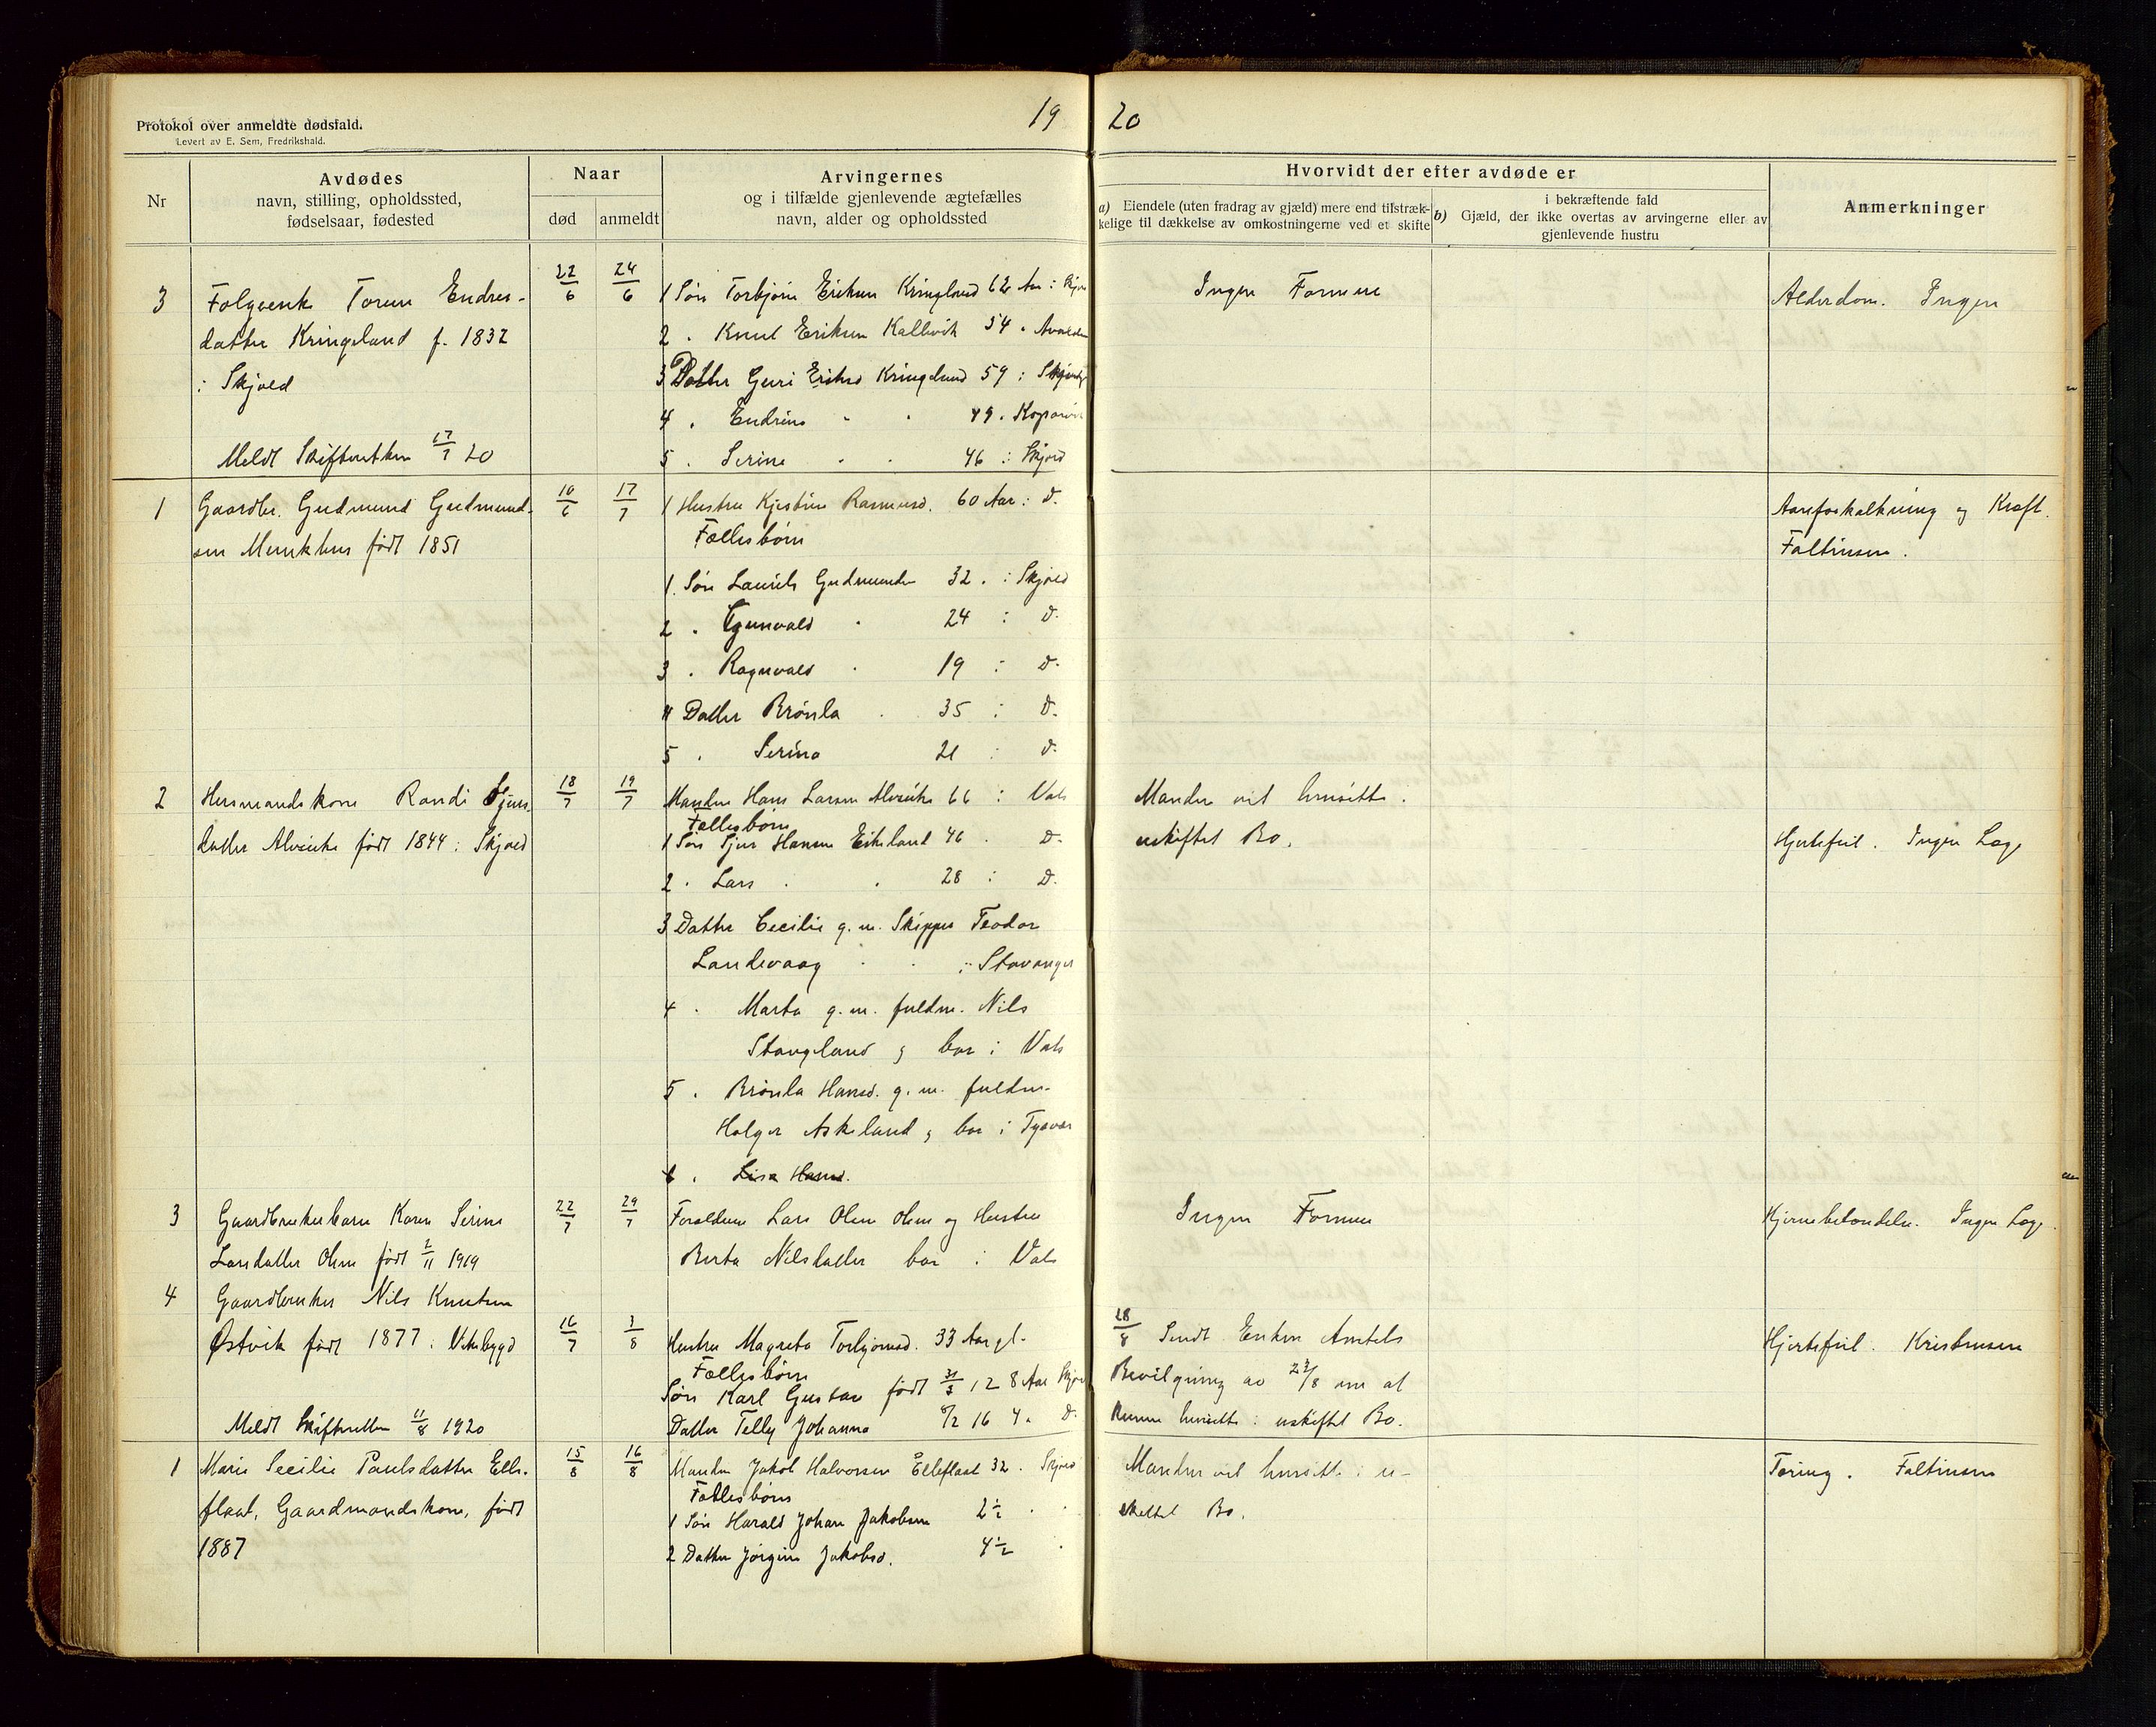 Protokol over anmeldte dødsfald.
Levert av E. Sem, Fredrikshald.
19
20
Nr
Avdødes
navn, stilling, opholdssted,
fødselsaar, fødested
Naar
død
anmeldt
Arvingernes
og i tilfælde gjenlevende ægtefælles
navn, alder og opholdssted
Hvorvidt der efter avdøde er
a) Eiendele (uten fradrag av gjæld) mere end tilstræk-
kelige til dækkelse av omkostningerne ved et skifte
i bekræftende fald
b) Gjæld, der ikke overtas av arvingerne eller av
gjenlevende hustru
Anmerkninger
3 Folgeenke Torun Endres-
datter Kringeland f. 1832
i Skjold
Meldt Skifteretten 17/7 20
22/6 24/6
1 Søn Torbjørn Eriksen Kringland 62 Aar i
2 " Knut Eriksen Kallevik 54 "
3 Datter Guri Eriksd Kringlund 59 i
4 " Endrine " " 49 "
5 " Serine " " 46 i Skjold
Ingen Formue
Alderdom. Ingen
1 Gaardbr. Gudmund Gudmund-
sen født 1851
10/6 17/7
1 Hustru Kjistine Rasmusd. 60 Aar i D.
Fællesbørn
1. Søn Laurits Gudmundsen 32 " i Skjold
2 " 24 i D.
3 " Ragnvald " 19 i D.
4 Datter Brønla " 35 i D.
5 " Serina 21 i D.
Aareforkalkning og Kræft.
Faltinsen.
2 Husmandskone Randi Sjurs
datter Alvseike født 1844 i Skjold
18/7 19/7
Manden Hans Larsen Alvseike 66 i Vats
Fællesbørn
1 Søn Sjur Hansen Eikeland 46 " D.
2 " Lars " " 28 i D.
3 Datter Cecilie g. m. Skipper Teodor
Landevaag " " i Stavanger
4 " Marta g. m. fuldm. Nils
Stangeland og bor i Vats
5 " Brønla Hansd. g. m. fuldm.
Holger Askeland og bor i Tysvær
6 " Lisa Hansd.
Manden vil hensitte i
uskiftet Bo.
Hjertefeil. Ingen Læge
3 Gaardbrukerbarn Karen Serine
Larsdatter Olsen født 2/11 1919
22/7 29/7
Forældrene Lars Olsen Olsen og Hustru
Berta Nilsdatter bor i Vats
Ingen Formue
Hjernebetændelse. Ingen Læge.
4 Gaardbruker Nils Knutsen
Østvik født 1877 i Vikebygd
Meldt Skifteretten 11/8 1920
16/7 3/8
Hustru Magreta Torbjørnsd. 33 Aar gl.
Fællesbørn
Søn Karl Gustav født 31/3 12 8 Aar
Datter Telly Johanna 8/2 16 4 " D.
28/8 Sendt Enken Amtets
Bevilgning av 23/8 om at
kunne hensitte i uskiftet Bo.
Hjertefeil. Kristensen
1 Marie Secilie Paulsdatter Elle-
flaat, Gaardmandskone, født
1887
15/8 16/8
Manden Jakob Halvorsen Elleflaat 32 " Skjold
Fællesbørn
1 Søn Harald Johan Jakobsen 2 1/2 " "
2 Datter Jørgine Jakobsd. 4 1/2 "
Manden vil hensitte i u-
skiftet Bo.
Tæring. Faltinsen